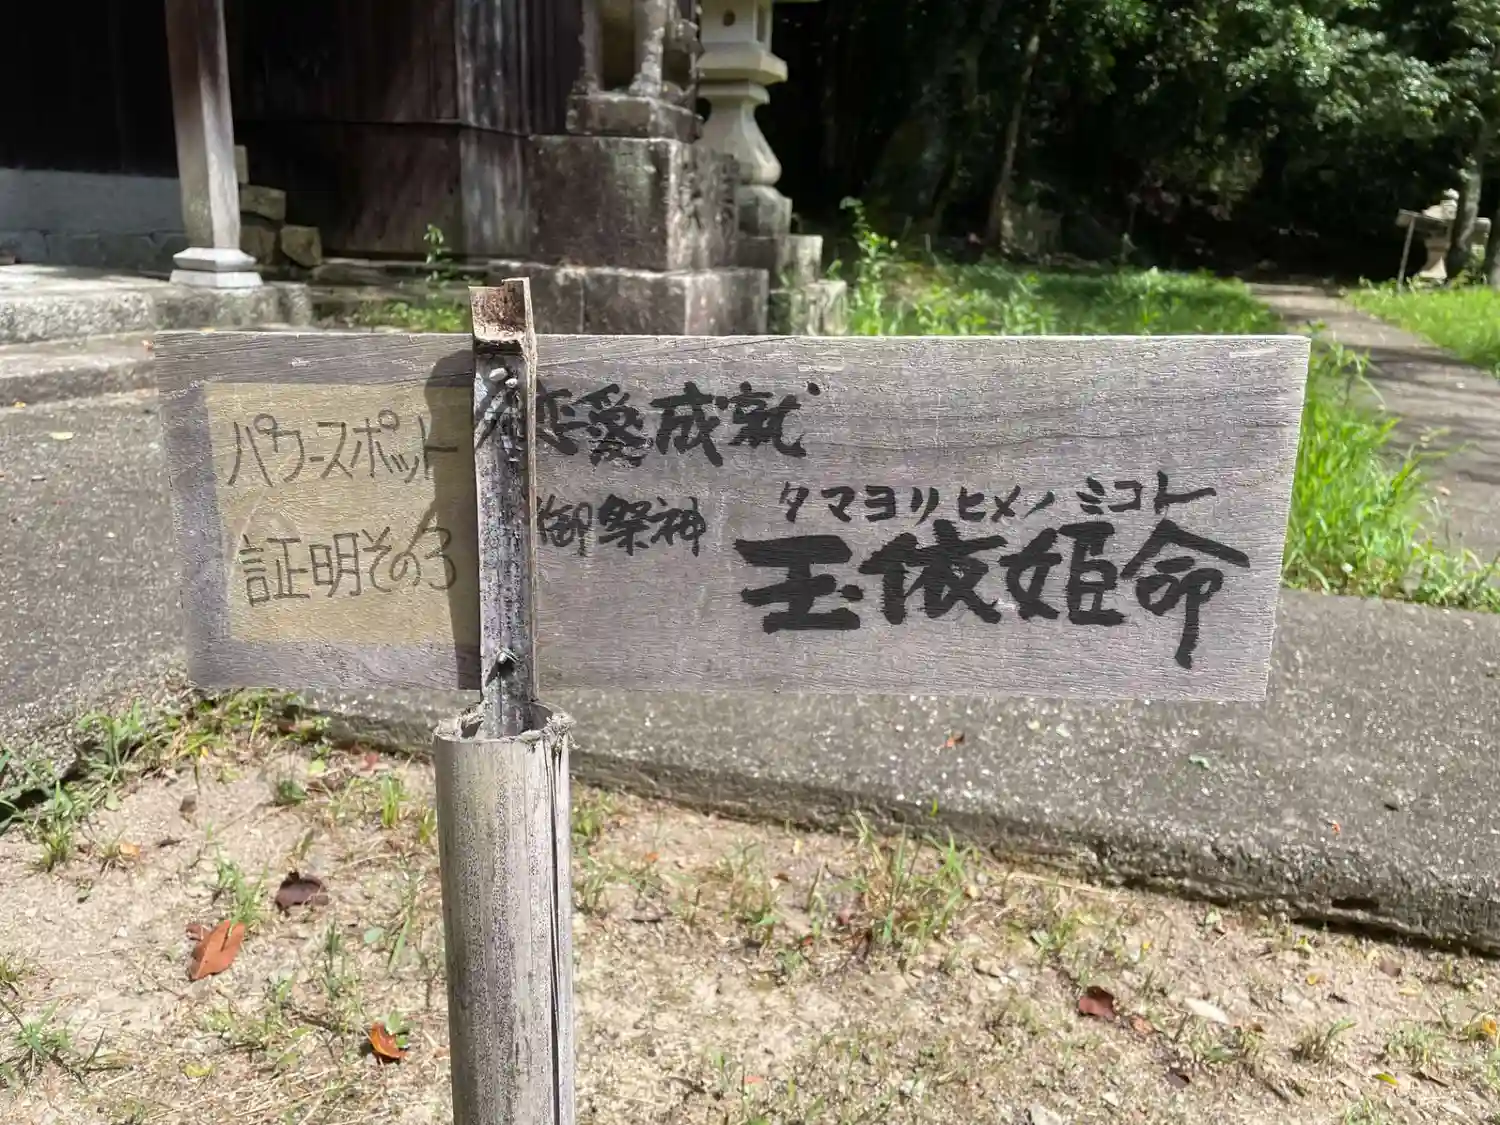 パワースポット
証明その3
恋愛成就
御祭神
タマヨリヒメノミコト
玉依姫命